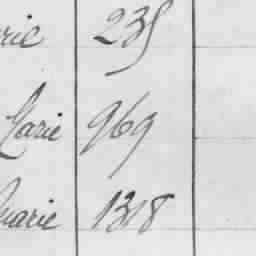 rie 235
Marie 969
marie 1318